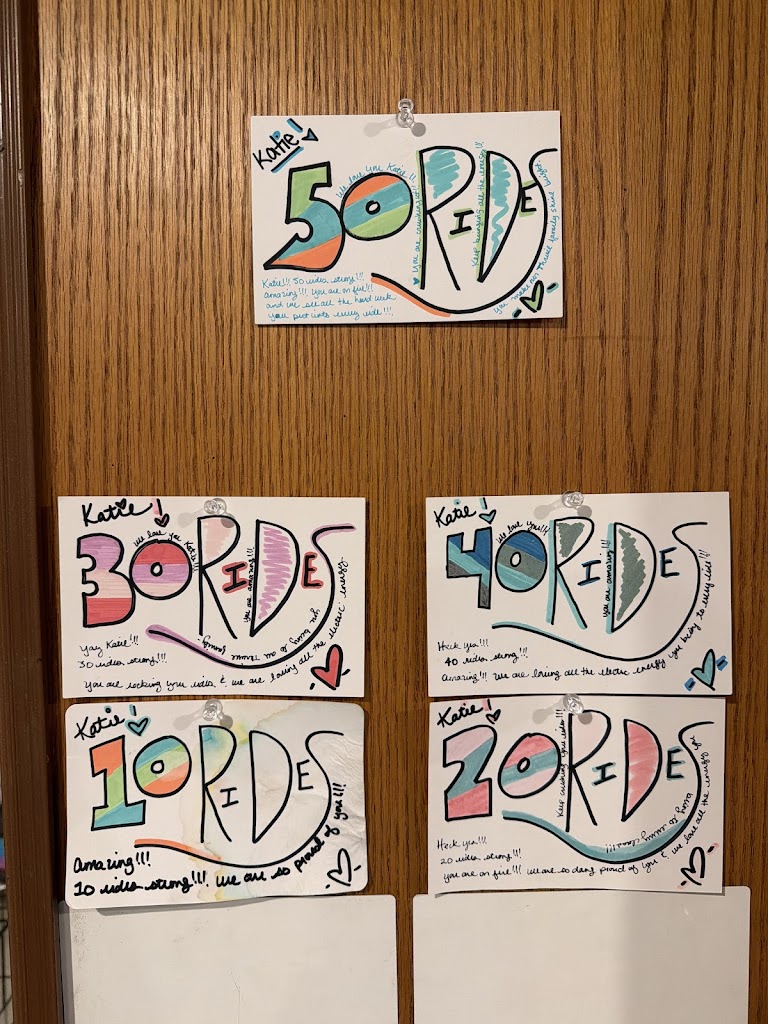 Katie!
50 RIDES
We love you Katie!!!
You are crushing it!
Keep bringing all the energy!!!
you make our Thrive family shine bright
Katie!!! 50 rides strong!!!
amazing!!! You are on fire!!!
and we see all the hard work
you put into every ride!!!
Katie!
30 RIDES
We love you Katie!!!
you are amazing!!!
Yay Katie!!!
30 rides strong!!!
You are rocking your rides & we are loving all the electric energy
you bring to our Thrive family.
Katie!
40 RIDES
We love you!!!
you are amazing!!!
Heck yea!!!
40 rides strong!!!
Amazing!!! We are loving all the electric energy you bring to every ride!!!
Katie!
10 RIDES
Amazing!!!
10 rides strong!!! We are so proud of you!!!
Katie!
20 RIDES
Keep crushing your rides!!!
Heck yea!!!
20 rides strong!!!
you are on fire!! we are so dang proud of you & we love all the energy you
bring to every class!!!